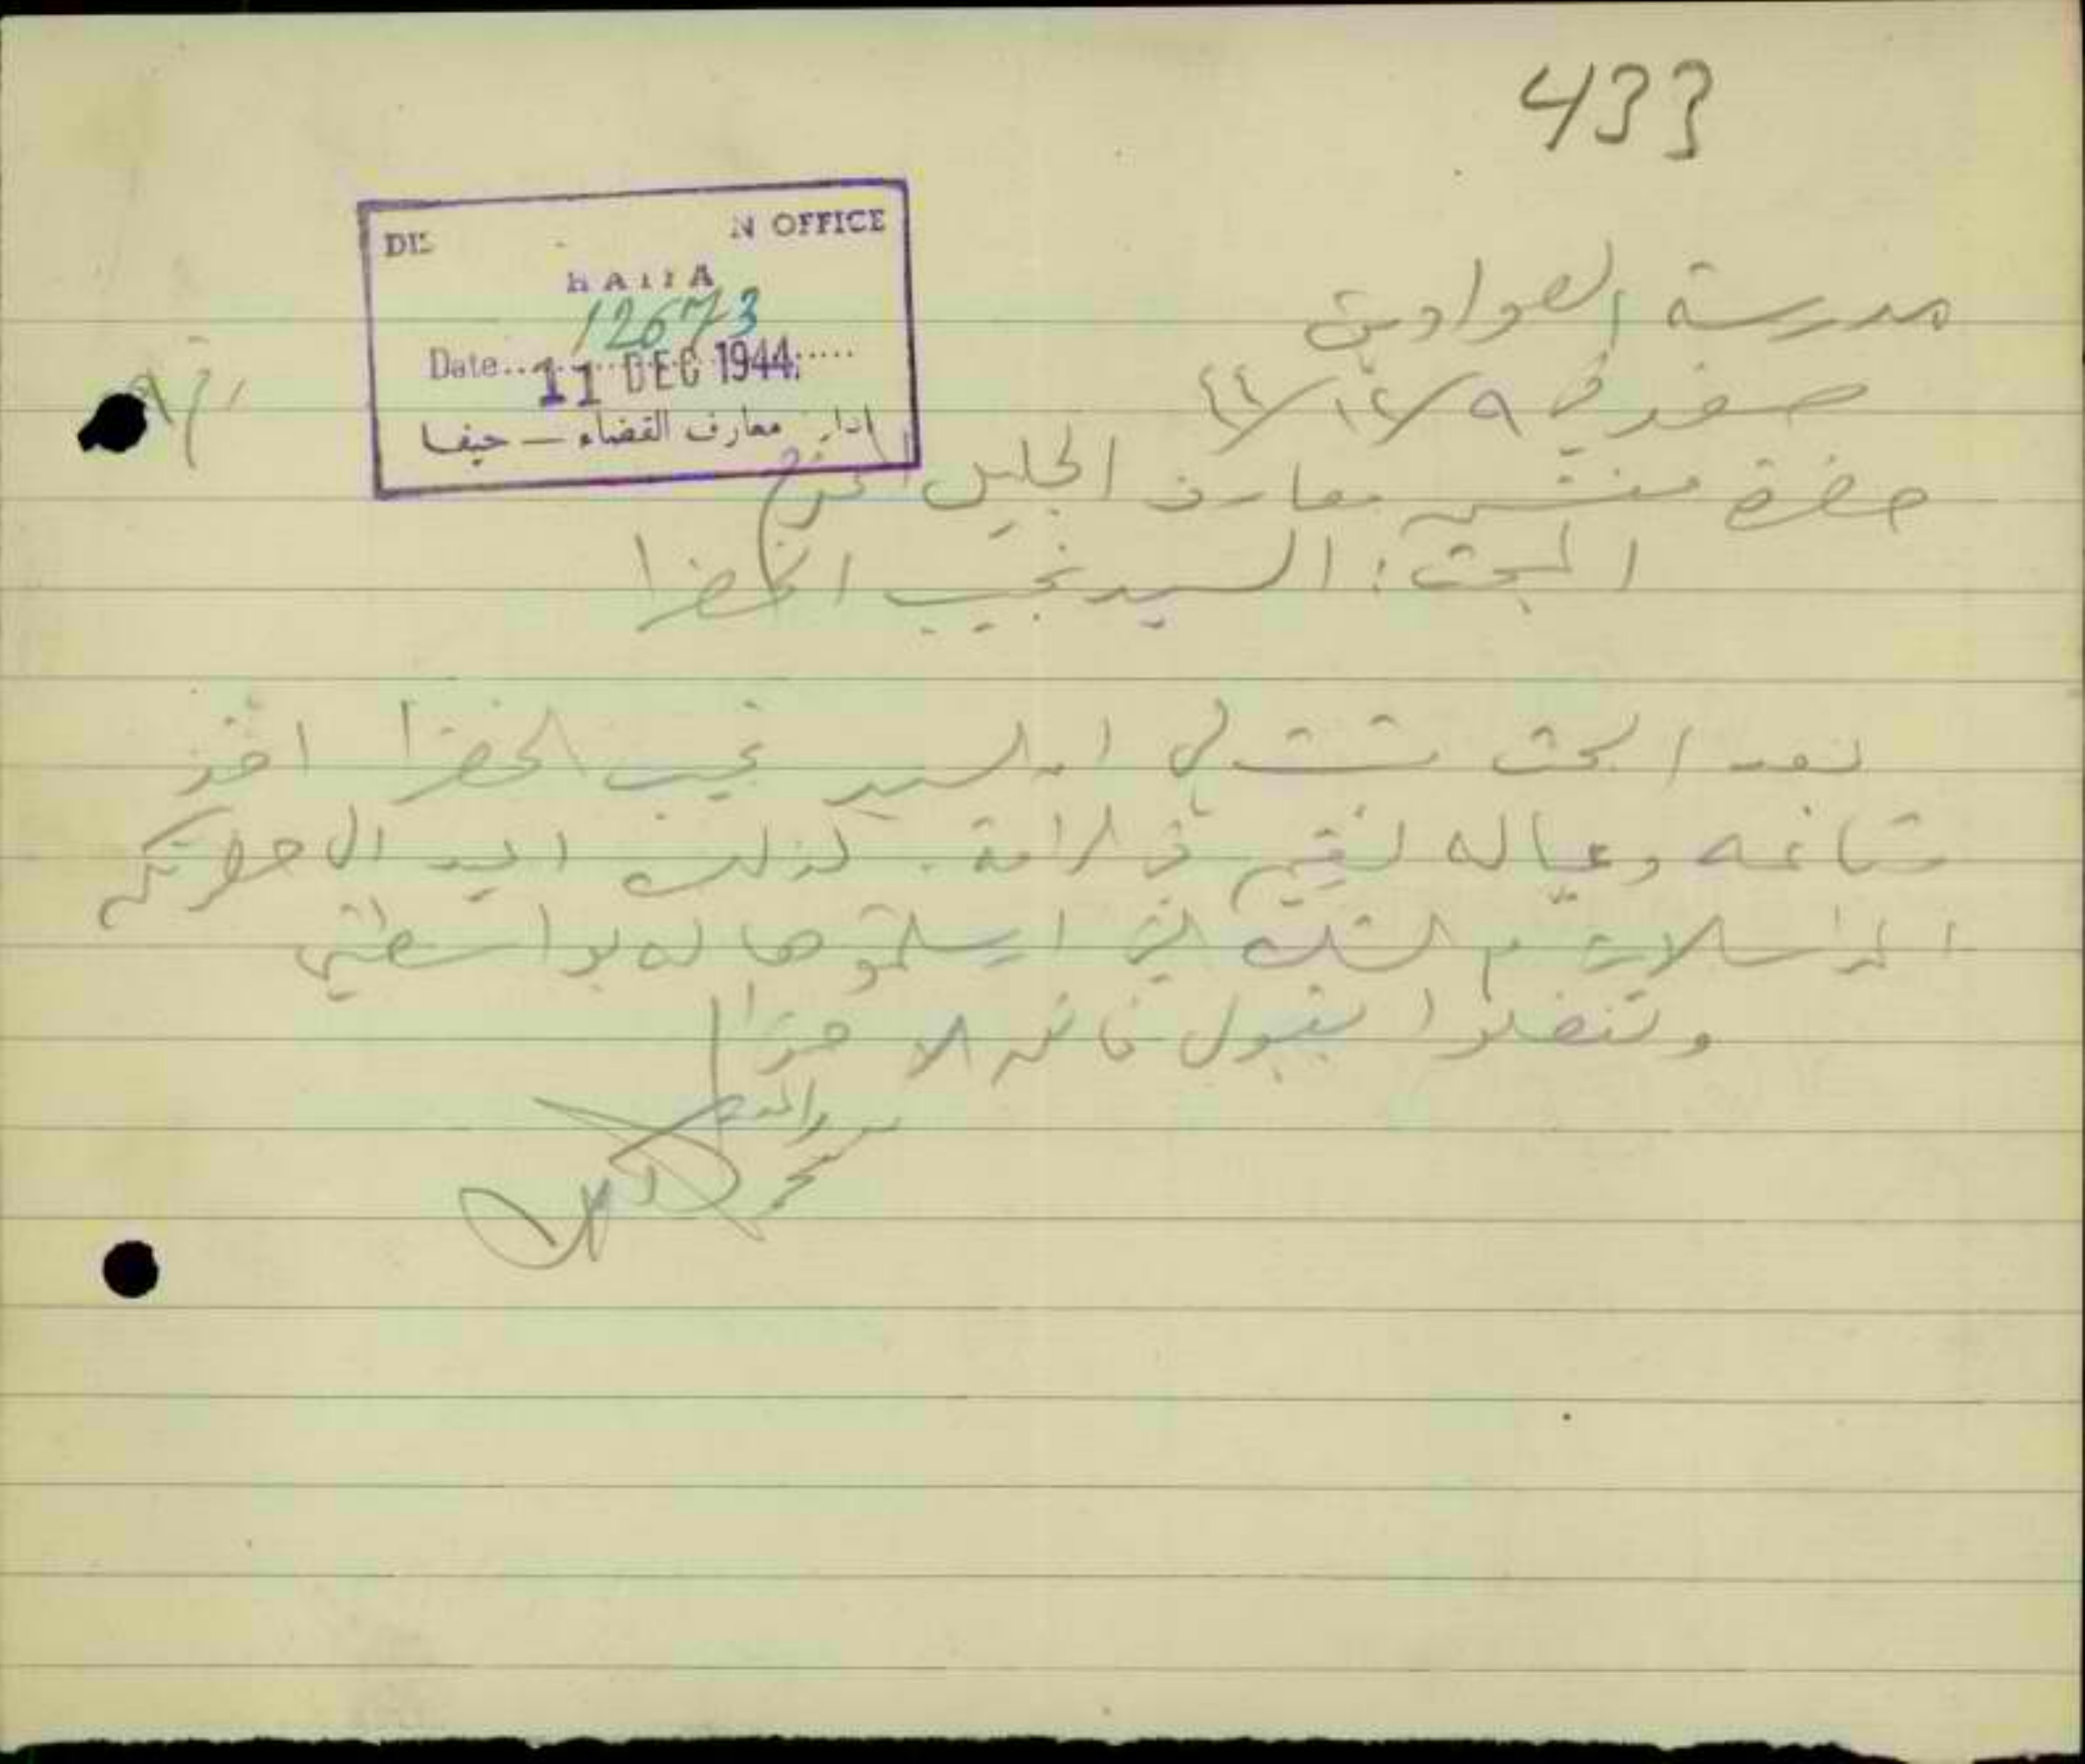 433
DIS N OFFICE
HAIFA
12673
Date 11 DEC 1944
ادارة معارف القضاء — حيفا
مدرسة الصوادين
صفد في ٩/١٢/٤٤
حضرة مفتش معارف الجليل
المبحث: السيد نجيب الخضرا
بعد البحث ثبت لي ان السيد نجيب الخضرا اخذ
وعياله في الرامة. لذلك اعيد الى حضرتكم
المراسلات مع الشك التي ارسلتموها له بواسطتي
وتفضلوا بقبول فائق الاحترام
مدير المدرسة